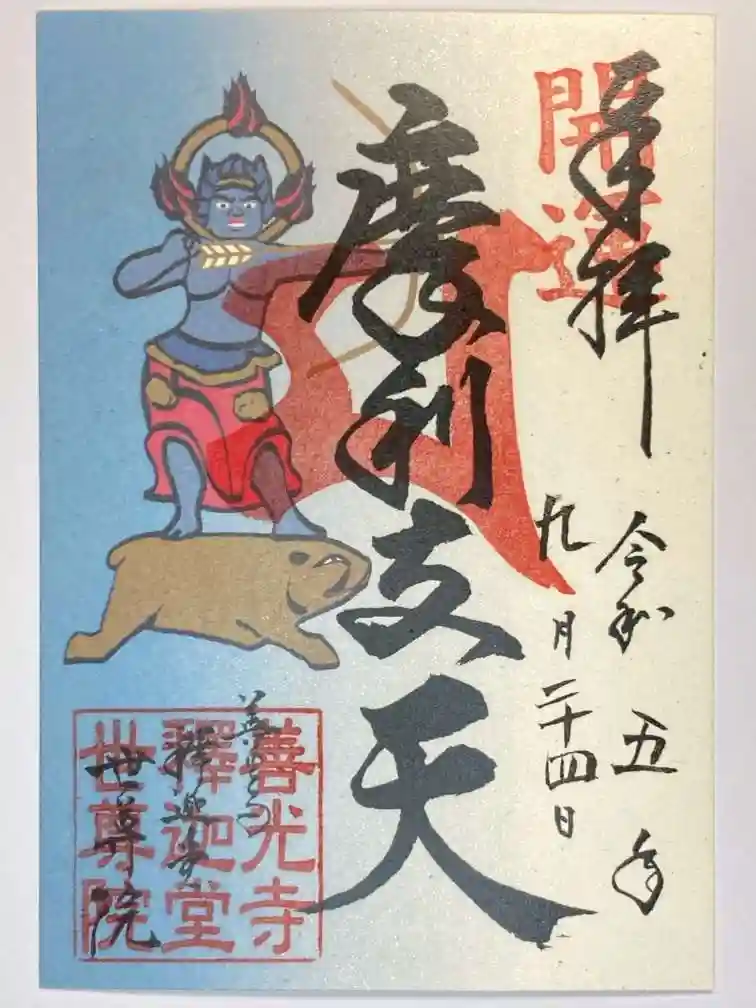 開運
奉拝
令和五年
九月二十四日
摩利支天
善光寺
釋迦堂
世尊院
善光寺
釈迦堂
世尊院